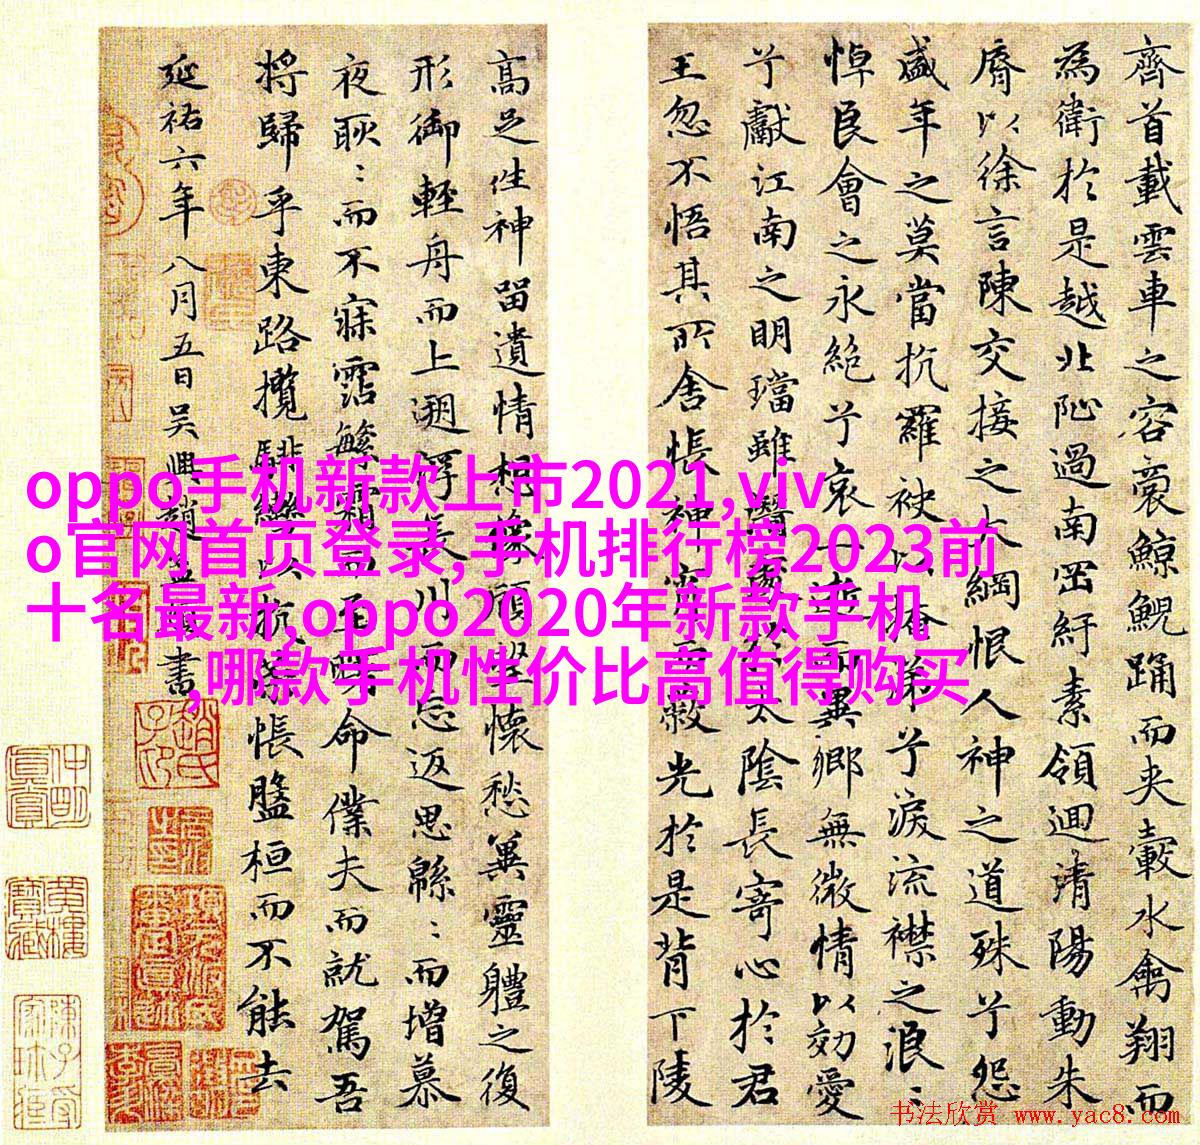 齊首載雲車之容裔鯨鯢踊而夾轂水禽翔而
為衛於是越北沚過南岡紆素領迴清陽動朱
脣以徐言陳交接之大綱恨人神之道殊兮怨
盛年之莫當抗羅袂以掩涕兮淚流襟之浪〻
悼良會之永絕兮哀一逝而異鄉無微情以効愛
兮獻江南之明璫雖潛處於太陰長寄心於君
王忽不悟其所舍悵神宵而蔽光於是背下陵
高足往神留遺情想像顧望懷愁冀靈體之復
形御輕舟而上遡浮長川而忘返思緜〻而增慕
夜耿〻而不寐霑繁霜而至曙命僕夫而就駕吾
將歸乎東路攬騑轡以抗策悵盤桓而不能去
延祐六年八月五日吳興趙孟頫書
oppo手机新款上市2021,viv
o官网首页登录,手机排行榜2023前
十名最新,oppo2020年新款手机
,哪款手机性价比高值得购买
书法欣赏 www.yac8.com